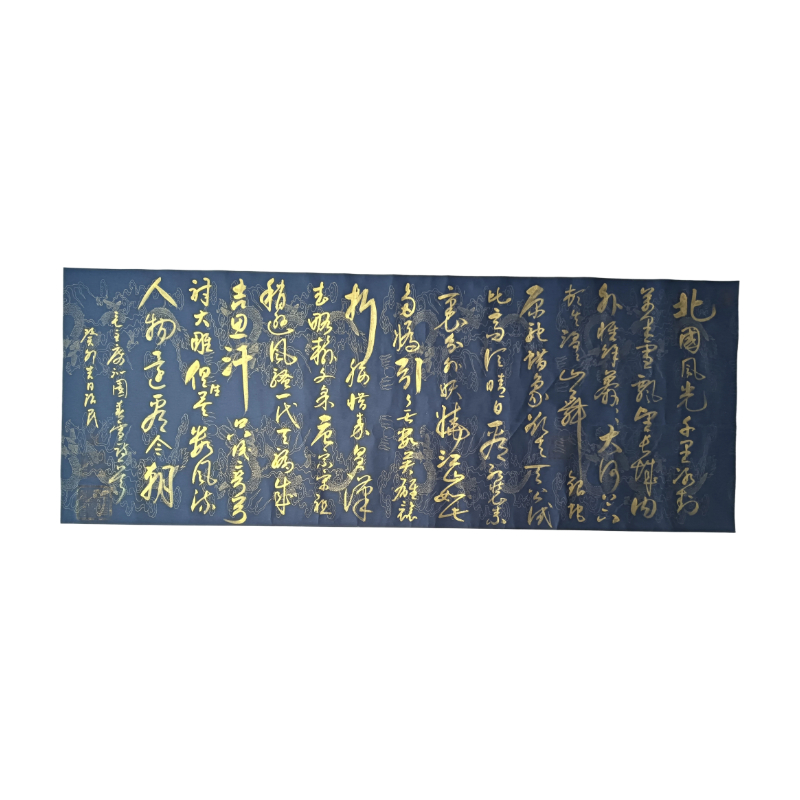 北國風光千里冰封
萬里雪飄望長城內
外惟餘莽々大河上下
頓失滔々山舞銀蛇
原馳蠟象欲與天公試
比高須晴日看紅裝素
裹分外妖嬈江山如此
多嬌引無數英雄競
折腰惜秦皇漢
武略輸文采唐宗宋祖
稍遜風騷一代天驕成
吉思汗只識彎弓
射大雕俱往矣數風流
人物還看今朝
毛主席沁園春雪
癸卯